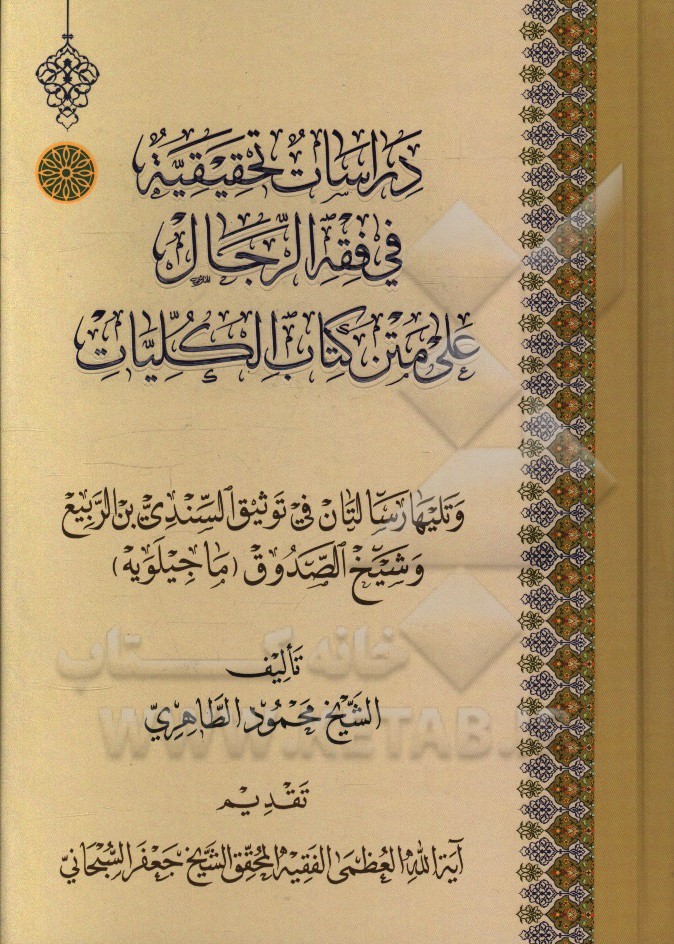 دِرَاسَاتٌ تَحْقِيقِيَّةٌ
فِي فِقْهِ الرِّجَالِ
عَلَى مَتْنِ كِتَابِ الْكُلِّيَّاتِ
وَتَلِيهَا رِسَالَتَانِ فِي تَوْثِيقِ السِّنْدِيِّ بْنِ الرَّبِيعِ
وَشَيْخِ الصَّدُوقِ (مَاجِيلَوَيْهِ)
خانه کتاب
تَأْلِيف
الشَّيْخ مَحْمُود الطَّاهِرِيّ
WWW.KETAB.IR
تَقْدِيم
آيَة اللهِ الْعُظْمَى الْفَقِيهِ الْمُحَقِّقِ الشَّيْخ جَعْفَر السُّبْحَانِيّ